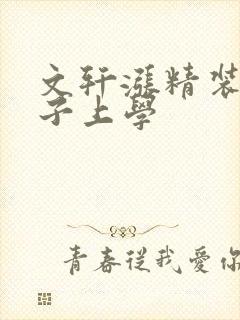 文轩涨精装
子上學
青春從我愛你